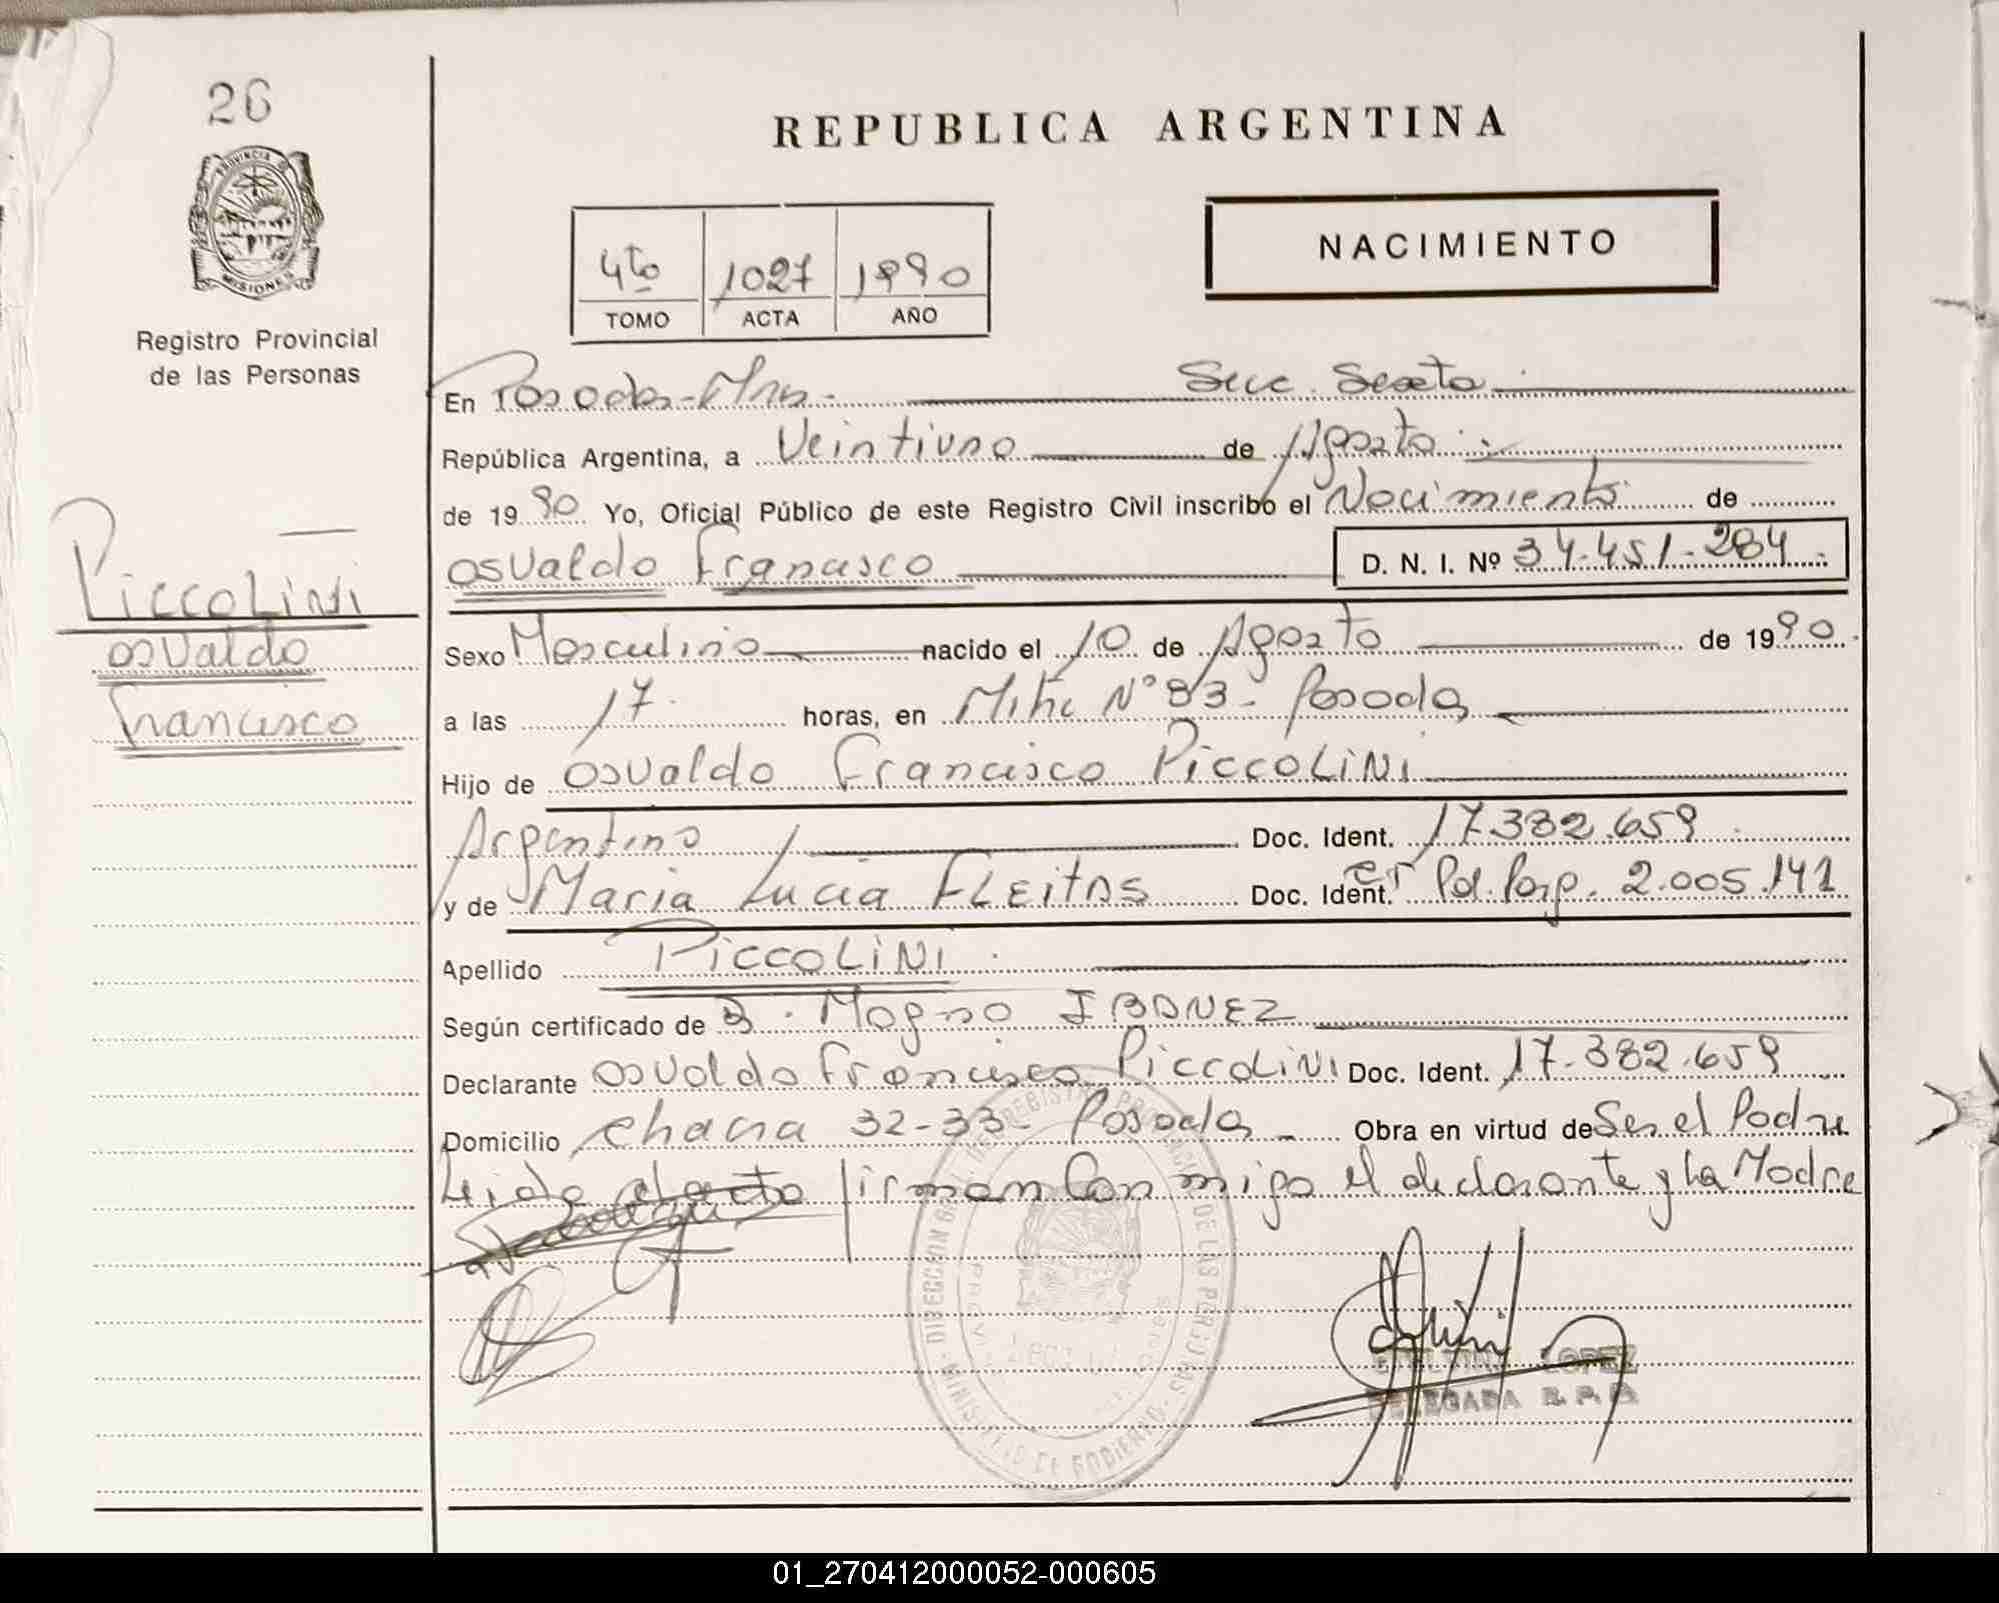 26
PROVINCIA DE
MISIONES
Registro Provincial
de las Personas
Piccolini
osvaldo
Francisco
REPUBLICA ARGENTINA
4to 1027 1990
TOMO ACTA AÑO
NACIMIENTO
En Posadas-Mnes- Secc. Sexta
República Argentina, a Veintiuno de Agosto
de 1990 Yo, Oficial Público de este Registro Civil inscribo el Nacimiento de
osvaldo Francisco D. N. I. Nº 34.451.284
Sexo Masculino nacido el 10 de Agosto de 1990
a las 17 horas, en Mitre Nº 83- Posadas
Hijo de osvaldo Francisco Piccolini
Argentino Doc. Ident. 17.382.659
y de Maria Lucia FLeitas Doc. Ident. Pol. Parg. 2.005.141
Apellido Piccolini
Según certificado de Magno IBANEZ
Declarante osvaldo Francisco Piccolini Doc. Ident. 17.382.659
Domicilio chacra 32-33- Posadas Obra en virtud de Ser el Padre
Leida el acta firman Conmigo el declarante y La Madre
DIRECCION GRAL. DEL REGISTRO PROVINCIAL DE LAS PERSONAS
MINISTERIO DE GOBIERNO
LOPEZ
DELEGADA R. P. P.
01_270412000052-000605